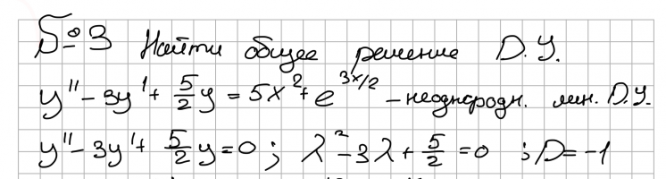 №3 Найти общее решение Д.У.
y'' - 3y' + 5/2 y = 5x² + e^(3x/2) – неоднородн. лин. Д.У.
y'' - 3y' + 5/2 y = 0 ; λ² - 3λ + 5/2 = 0 ; D = -1